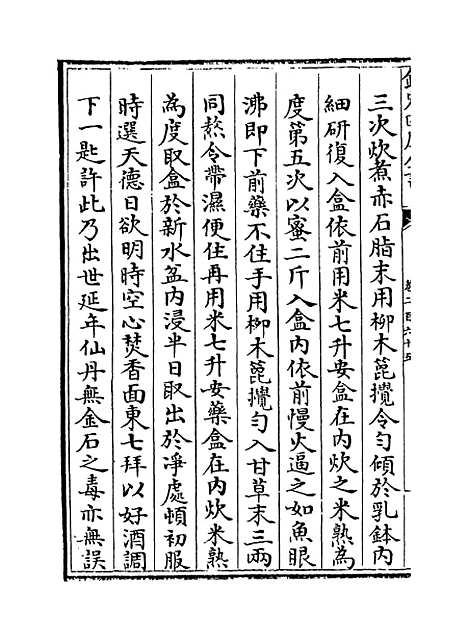 三次炊煮赤石脂末用柳木篦攪令勻傾於乳鉢内
細研復入盒依前用米七升安盒在内炊之米熟為
度第五次以蜜二斤入盒内依前慢火逼之如魚眼
沸即下前藥不住手用柳木篦攪勻入甘草末三兩
同熬令帶濕便住再用米七升安藥盒在内炊米熟
為度取盒於新水盆内浸半日取出於凈處頓初服
時選天德日欲明時空心焚香面東七拜以好酒調
下一匙許此乃出世延年仙丹無金石之毒亦無誤